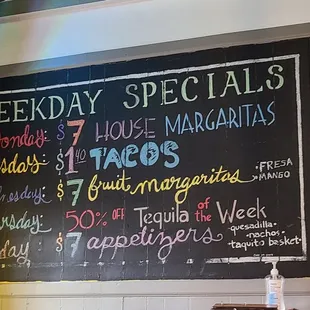 EEKDAY SPECIALS
onday $7 HOUSE MARGARITAS
sday $1.40 TACOS
nesday $7 fruit margaritas • FRESA • MANGO
rsday 50% OFF Tequila of the Week
day $7 appetizers • quesadilla • nachos • taquito basket